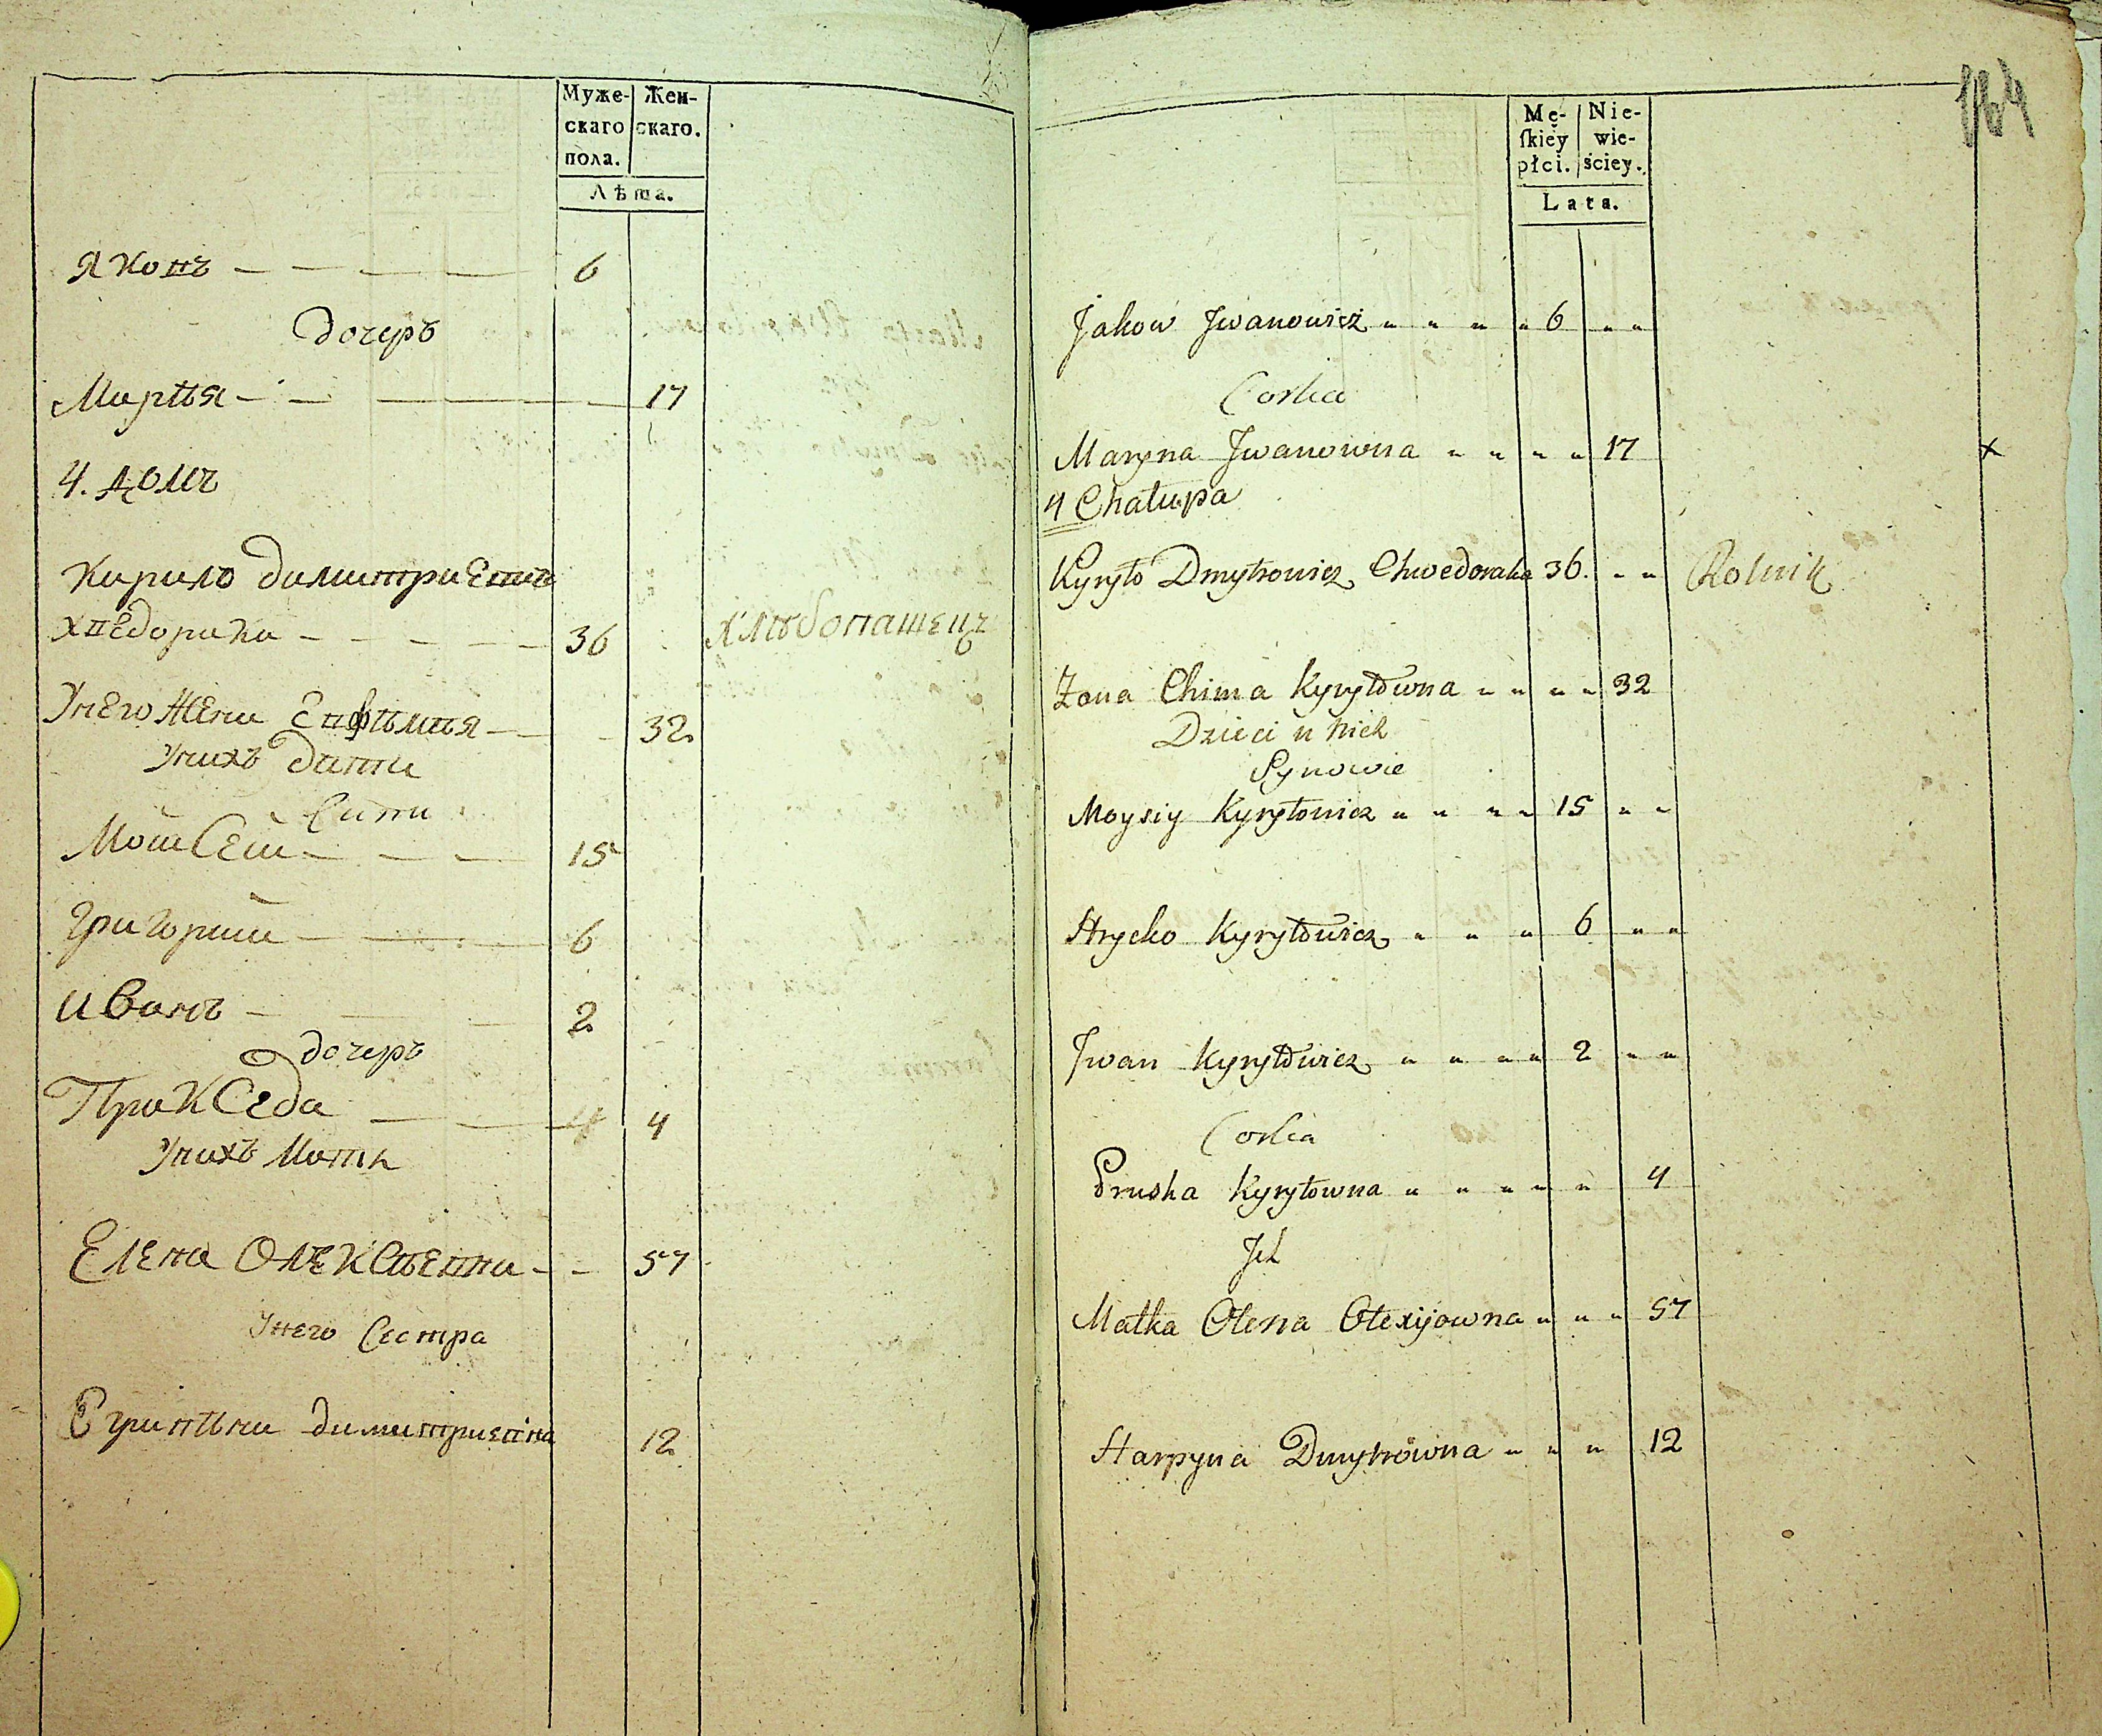 Муже-
скаго
пола.
Жен-
скаго.
Лѣта.
Яковъ 6
дочеръ
Мартя 17
4. домъ
Кирило димитриевъ
хведорака 36 хлѣбопашецъ
Унего жена Евфѣмия 32
Унихъ дѣти
Сини
Мойсей 15
Григорий 6
иванъ 2
дочеръ
Пракседа 4 4
Унихъ Мати
Елена Олексѣевна 57
Унего Сестра
димитриевна 12
164
Mę-
ſkiéy
płci.
Nie-
wie-
ściey.
Lata.
Jakow Jwanowicz 6
Corka
Maryna Jwanowna 17
x
4 Chałupa
Kyryło Dmytrowicz Chwedoraka 36. Rolnik
Żona Chima Kyryłowna 32
Dzieci u nich
Synowie
Moysiy Kyryłowicz 15
Hrycko Kyryłowicz 6
Jwan Kyryłowicz 2
Corka
Pruska Kyryłowna 4
Jch
Matka Ołena Ołexijowna 57
Harpyna Dmytrowna 12